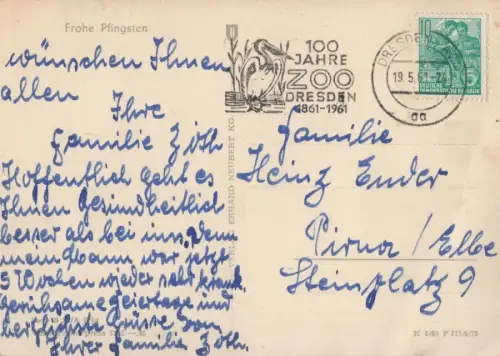 Frohe Pfingsten
wünschen Ihnen
allen
Ihre
Familie Zöth
Hoffentlich geht es
Ihnen Gesundheitlich
besser als bei uns, denn
mein Mann war jetzt
5 Wochen wieder sehr krank.
Geruhsame Feiertage und
herzlichste Grüsse von
Ihrer Familie Zöth.
100
JAHRE
ZOO
DRESDEN
1861-1961
DRESDEN
19.5.61-24
aa
10
DEUTSCHE
Familie
Heinz Ender
Pirna/Elbe
Steinplatz 9
EBERHARD NEUBERT KG.